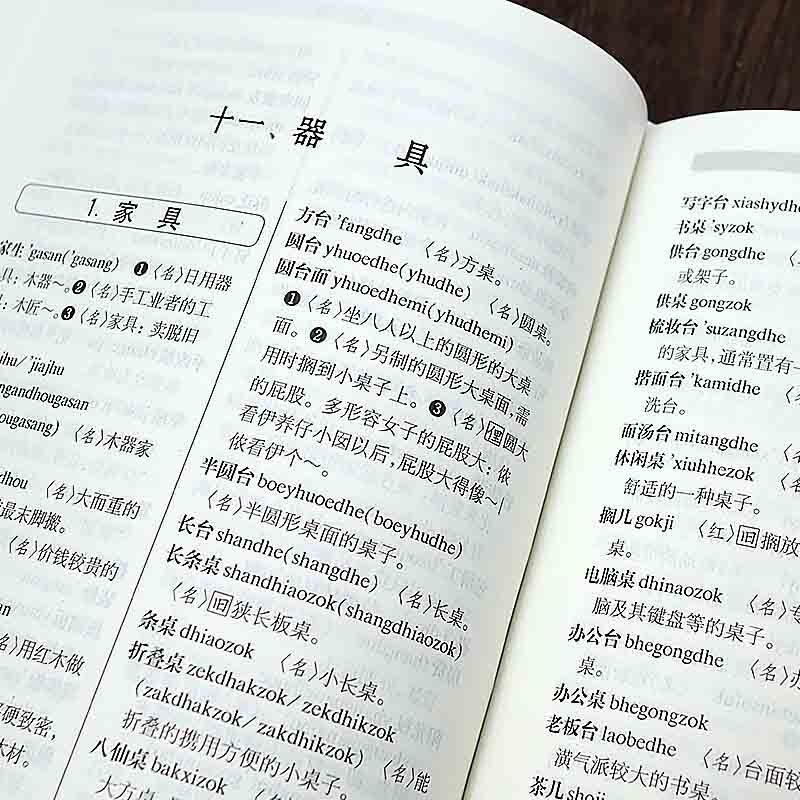 十一、器 具
1. 家 具
家生 'gasan('gasang) ❶〈名〉日用器
具：木器～。❷〈名〉手工业者的工
具：木匠～。❸〈名〉家具：卖脱旧
ihu/'jiajhu
ngandhougasan
ougasang) 〈名〉木器家
dhou 〈名〉大而重的
最末脚搬。
〈名〉价钱较贵的
san
〈名〉用红木做
硬致密，
木材。
方台 'fangdhe 〈名〉方桌。
圆台 yhuoedhe(yhudhe) 〈名〉圆桌。
圆台面 yhuoedhemi(yhudhemi)
❶〈名〉坐八人以上的圆形的大桌
面。❷〈名〉另制的圆形大桌面，需
用时搁到小桌子上。❸〈名〉圆大
的屁股。多形容女子的屁股大：侬
看伊养仔小囡以后，屁股大得像～！
侬看伊个～。
半圆台 boeyhuoedhe(boeyhudhe)
〈名〉半圆形桌面的桌子。
长台 shandhe(shangdhe) 〈名〉长桌。
长条桌 shandhiaozok(shangdhiaozok)
〈名〉旧狭长板桌。
条桌 dhiaozok 〈名〉小长桌。
折叠桌 zekdhakzok/zekdhikzok
(zakdhakzok/zakdhikzok) 〈名〉能
折叠的携用方便的小桌子。
八仙桌 bakxizok 〈名〉
大方桌
写字台 xiashydhe
书桌 'syzok
供台 gongdhe
或架子。
供桌 gongzok
梳妆台 'suzangdhe
的家具，通常置有一
揩面台 'kamidhe
洗台。
面汤台 mitangdhe
休闲桌 'xiuhhezok
舒适的一种桌子。
搁儿 gokji 〈红〉旧搁放
桌。
电脑桌 dhinaozok 〈名〉专
脑及其键盘等的桌子。
办公台 bhegongdhe 〈名〉办
桌。
办公桌 bhegongzok
老板台 laobedhe 〈名〉台面较
潢气派较大的书桌。
茶几 shoji